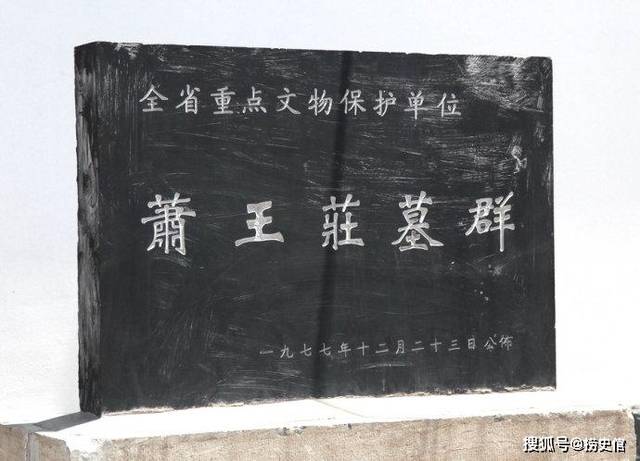 全省重点文物保护单位
蕭王莊墓群
一九七七年十二月二十三日公佈
搜狐号@捞史馆